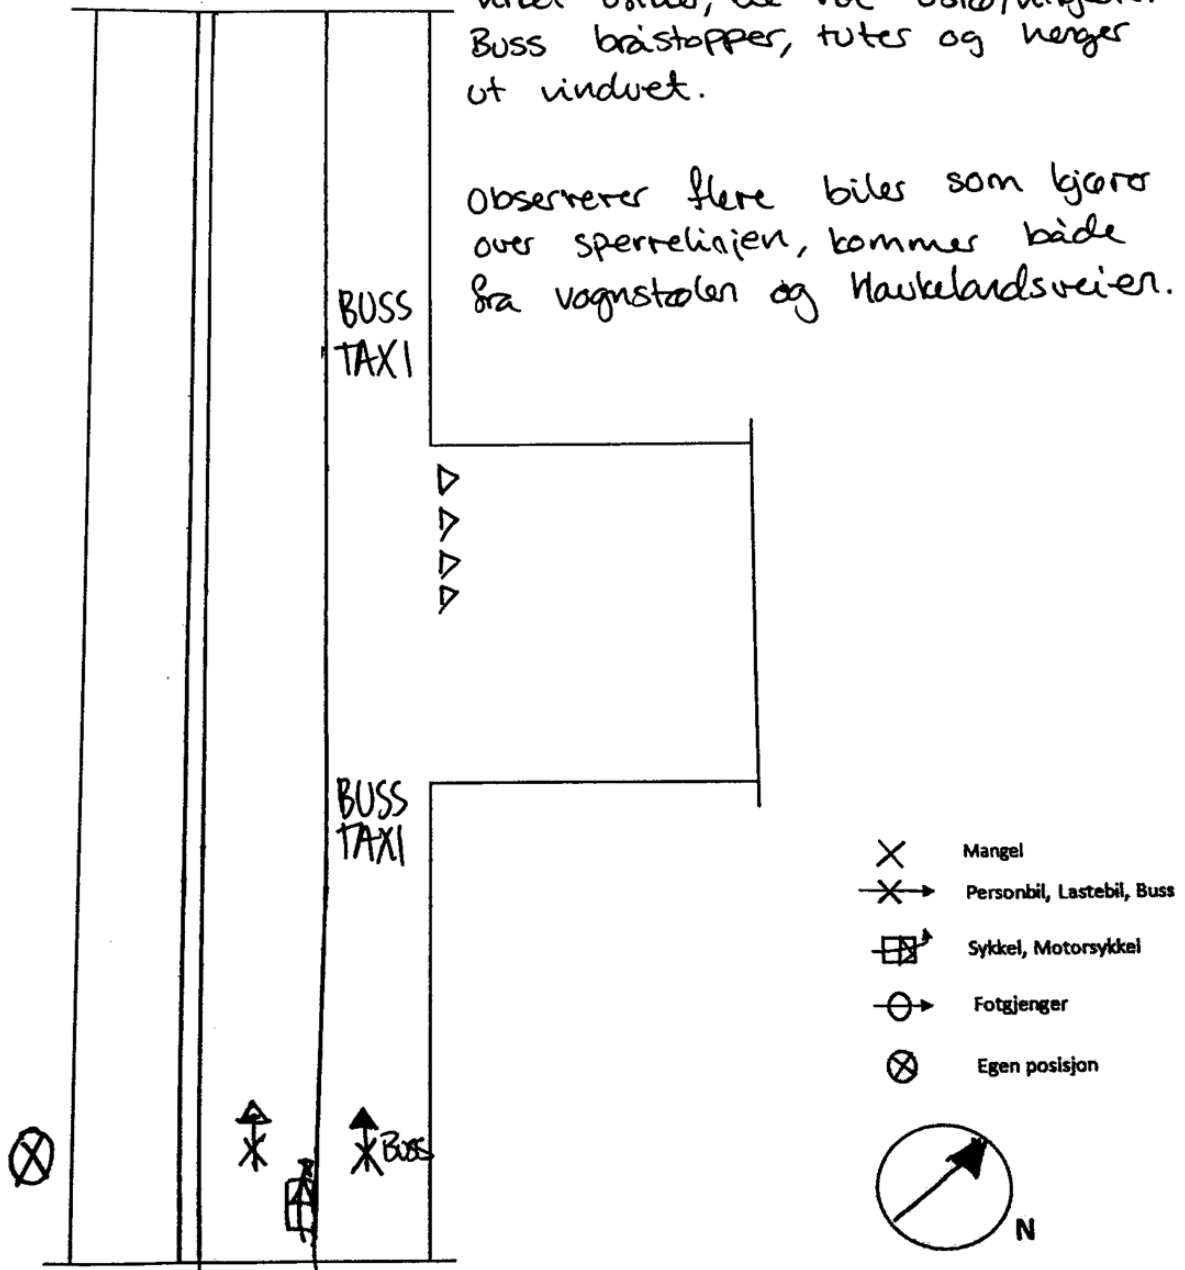 Buss bråstopper, tutes og henger
ut vinduet.
Observerer flere biler som kjører
over sperrelinjen, kommer både
fra vognstølen og Haukelandsveien.
BUSS
TAXI
BUSS
TAXI
Mangel
Personbil, Lastebil, Buss
Sykkel, Motorsykkel
Fotgjenger
Egen posisjon
Buss
N